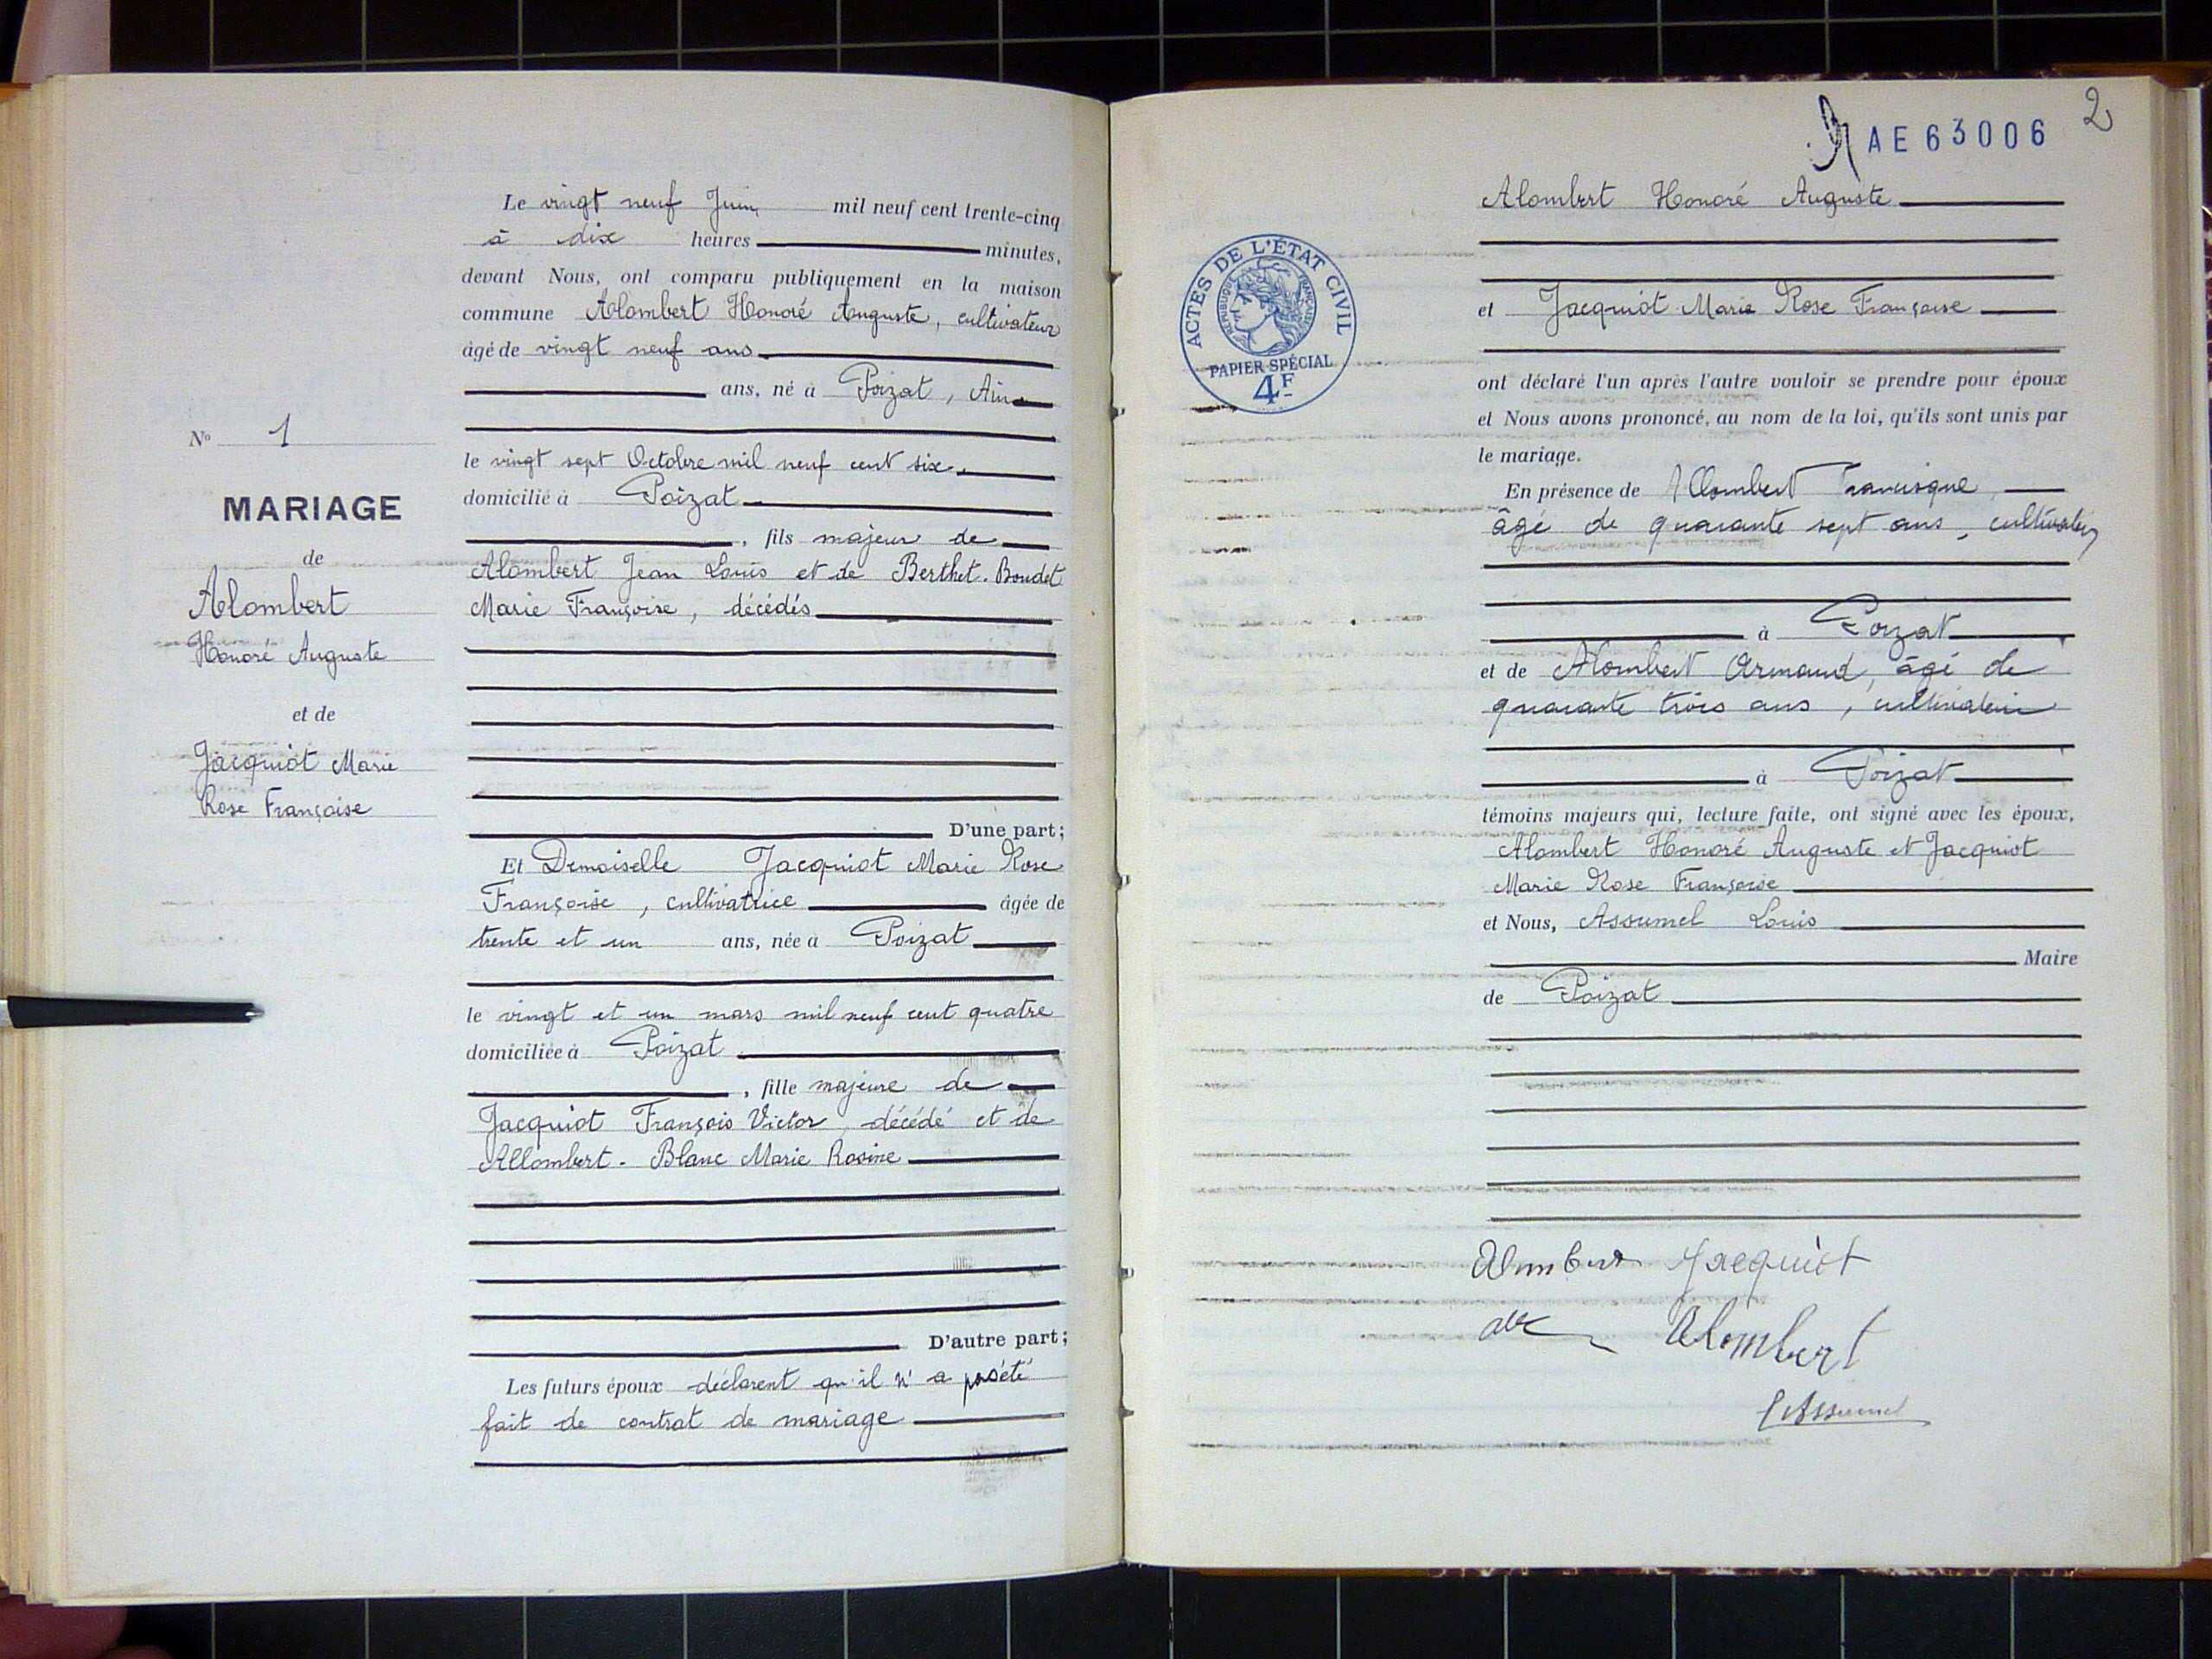 N° 1
MARIAGE
de
Alombert
Honoré Auguste
et de
Jacquiot Marie
Rose Françoise
Le vingt neuf Juin mil neuf cent trente-cinq
à dix heures minutes,
devant Nous, ont comparu publiquement en la maison
commune Alombert Honoré Auguste, cultivateur
âgé de vingt neuf ans
ans, né à Poizat, Ain
le vingt sept Octobre mil neuf cent six
domicilié à Poizat
, fils majeur de
Alombert Jean Louis et de Berthet-Bondet
Marie Françoise, décédés
D'une part;
Et Demoiselle Jacquiot Marie Rose
Françoise, cultivatrice âgée de
trente et un ans, née à Poizat
le vingt et un mars mil neuf cent quatre
domiciliée à Poizat
, fille majeure de
Jacquiot François Victor, décédé et de
Allombert-Blanc Marie Rosine
D'autre part;
Les futurs époux déclarent qu'il n'a pas été
fait de contrat de mariage
AE63006 2
ACTES DE L'ÉTAT CIVIL
RÉPUBLIQUE FRANÇAISE
PAPIER SPÉCIAL
4F
Alombert Honoré Auguste
et Jacquiot Marie Rose Françoise
ont déclaré l'un après l'autre vouloir se prendre pour époux
et Nous avons prononcé, au nom de la loi, qu'ils sont unis par
le mariage.
En présence de Allombert Francisque,
âgé de quarante sept ans, cultivateur
à Poizat
et de Alombert Armand, âgé de
quarante trois ans, cultivateur
à Poizat
témoins majeurs qui, lecture faite, ont signé avec les époux,
Alombert Honoré Auguste et Jacquiot
Marie Rose Françoise
et Nous, Assumel Louis
Maire
de Poizat
Alombert Jacquiot
Alombert
L Assumel